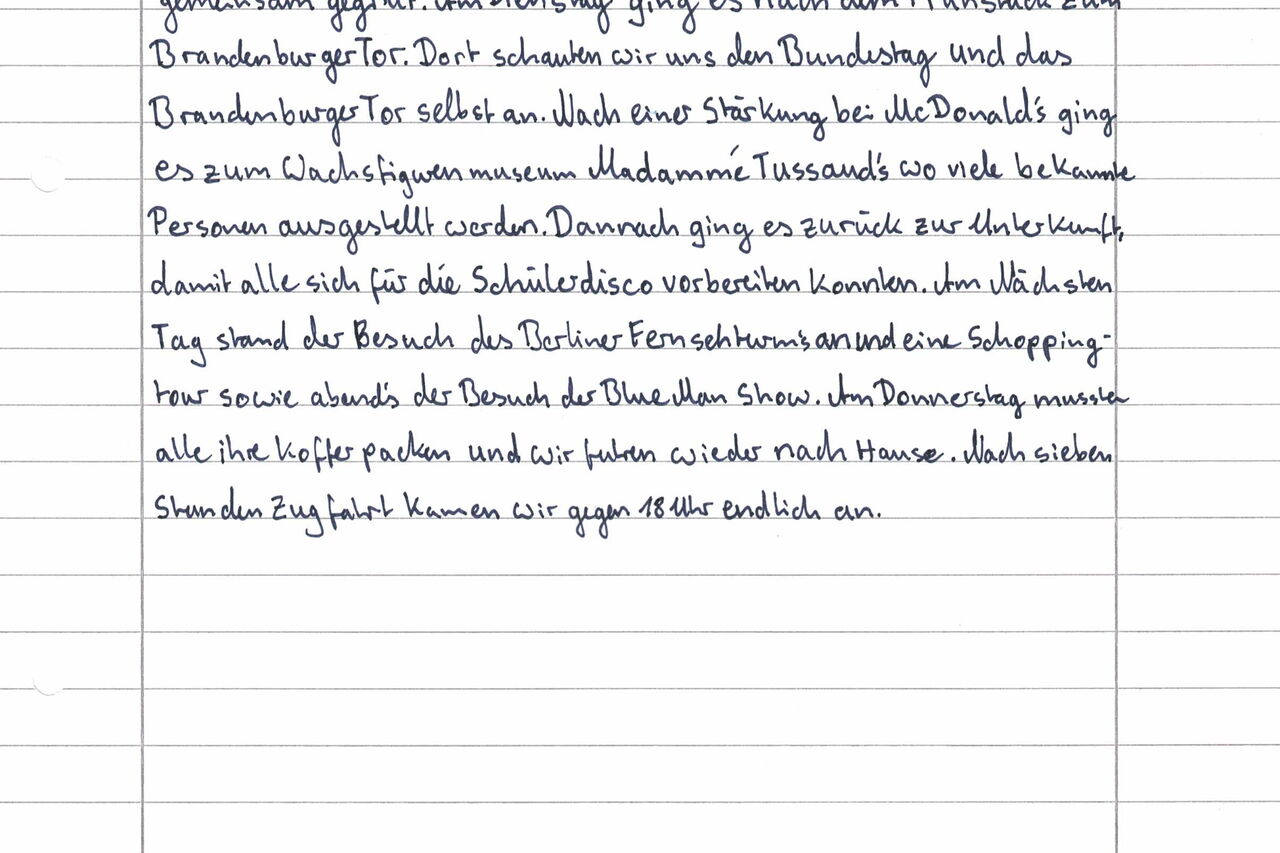 gemeinsam gegrillt. Am Dienstag ging es nach dem Frühstück zum
Brandenburger Tor. Dort schauten wir uns den Bundestag und das
Brandenburger Tor selbst an. Nach einer Stärkung bei McDonald's ging
es zum Wachsfigurenmuseum Madammé Tussaud's wo viele bekannte
Personen ausgestellt werden. Dannach ging es zurück zur Unterkunft,
damit alle sich für die Schülerdisco vorbereiten konnten. Am Nächsten
Tag stand der Besuch des Berliner Fernsehturm's an und eine Schopping-
tour sowie abend's der Besuch der Blue Man Show. Am Donnerstag mussten
alle ihre Koffer packen und wir furen wieder nach Hause. Nach sieben
Stunden Zugfahrt kamen wir gegen 18 Uhr endlich an.